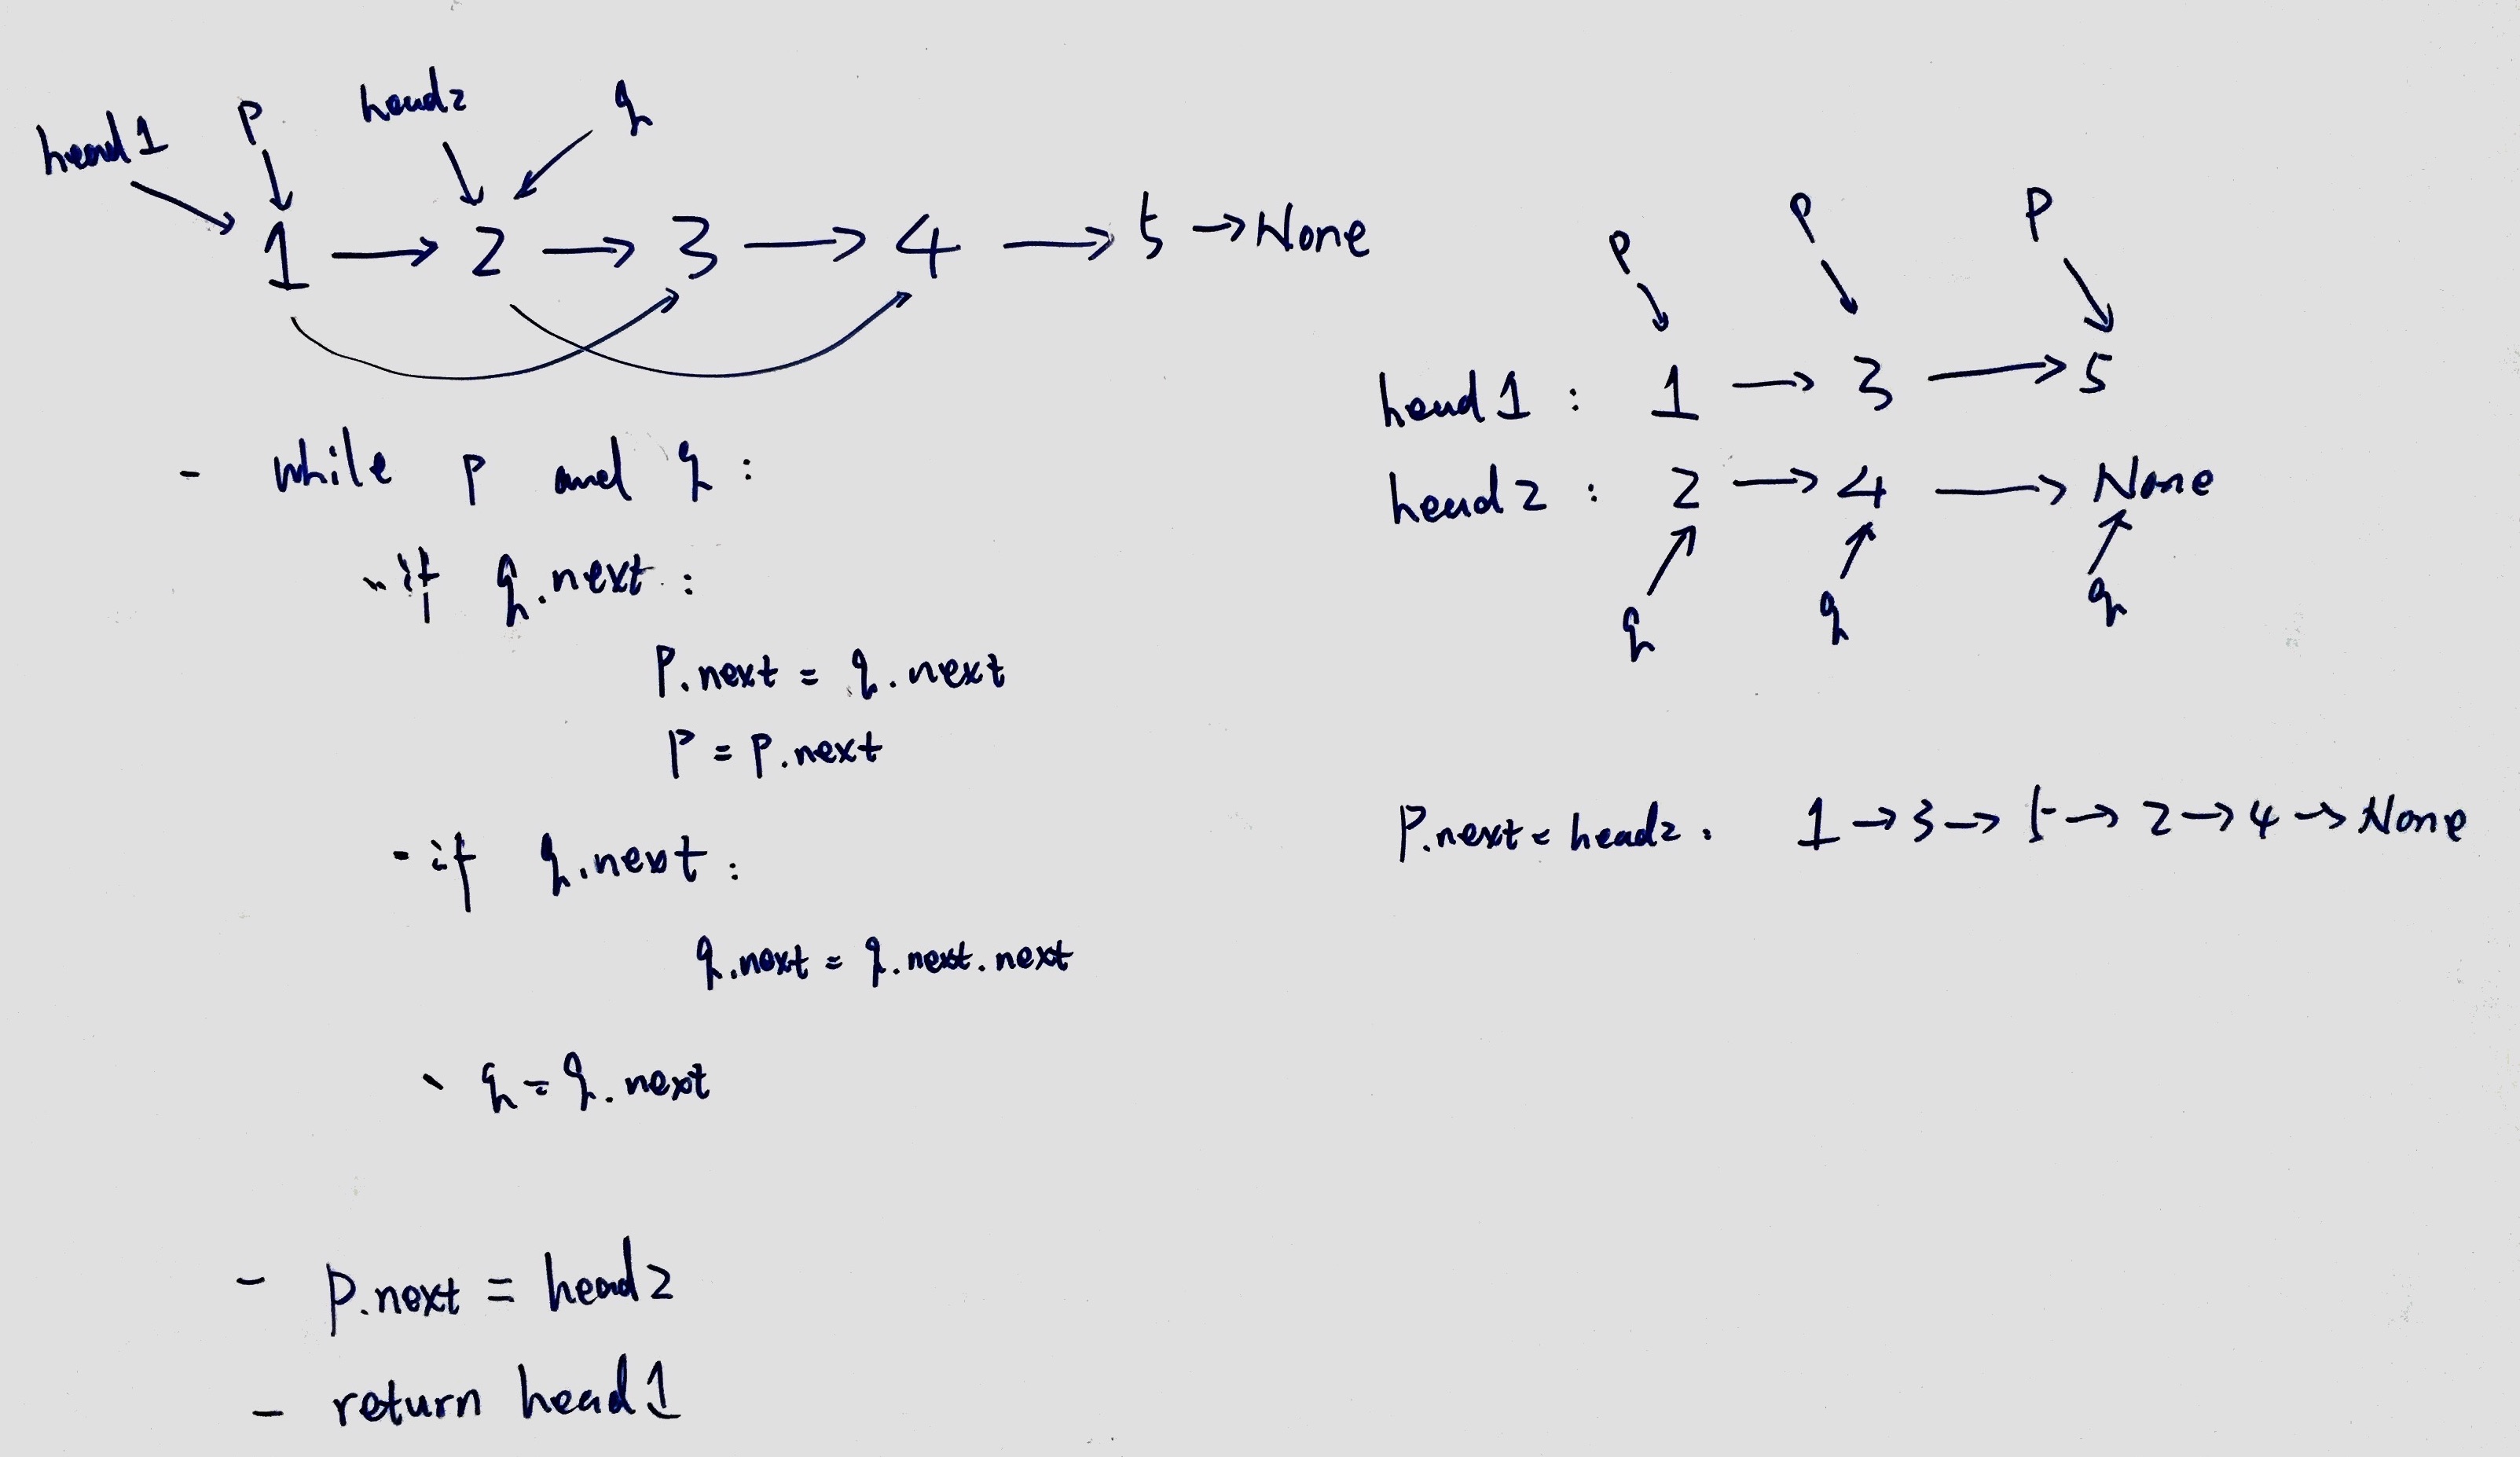 head1 P head2 q
1 → 2 → 3 → 4 → 5 → None
- while P and q :
- if q.next :
P.next = q.next
P = P.next
- if q.next :
q.next = q.next.next
- q = q.next
- P.next = head2
- return head1
P P P
head1 : 1 → 3 → 5
head2 : 2 → 4 → None
q q q
P.next = head2 : 1 → 3 → 5 → 2 → 4 → None